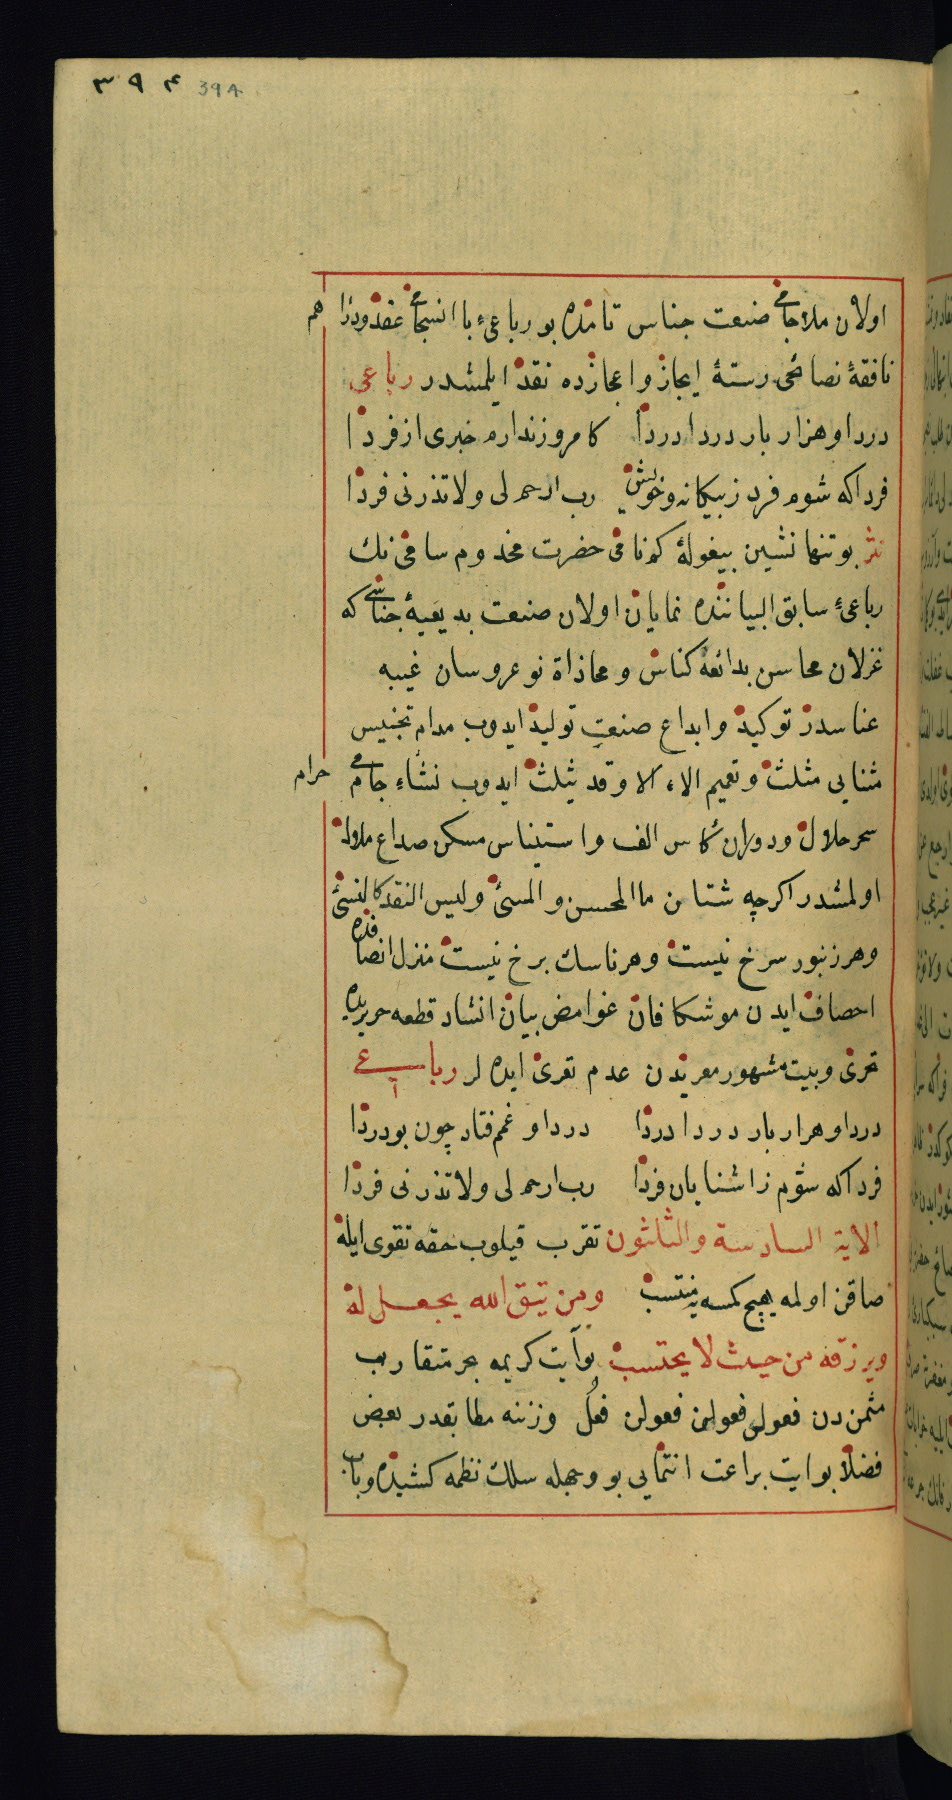 ٣٩۴ 394
اولان ملا جامی صنعت جناس تامده بو رباعیء با انسجامی عقد و درا هم
نافقهٔ نصائحی رستهٔ ایجاز و اعجازده نقد ایلمشدر رباعی
دردا و هزار بار دردا دردا کامروز ندارم خبری از فردا
فردا که شوم فرد ز بیکانه و خویش رب ارحم لی ولا تذرنی فردا
نثر بو تنها نشین بیغولهٔ کمنامی حضرت مخدوم سامی نك
رباعیء سابق البیاننده نمایان اولان صنعت بدیعیهٔ جناسی که
غزلان محاسن بدائعه کناس و محاذاة نو عروسان غیبه
عناسدر توکید و ابداع صنعت تولید ایدوب مدام تجنیس
ثنایی مثلث و تعمیم الاء الا وقد یثلث ایدوب نشاء جامی حرام
سحر حلال و دوران کاس الف و استیناس مسکن صداع ملال
اولمشدر اکرچه شتان ما المحسن والمسئ ولیس النقد کالنسئ
و هر زنبور سرخ نیست و هر ناسك برخ نیست منزل انصافده
احصاف ایدن موشکافان غوامض بیان انشاد قطعه حریریده
تحری و بیت مشهور معریدن عدم تعری ایده لر رباعی
دردا و هرار بار دردا دردا دردا و غمم فتاد چون بو دردا
فردا که شوم ز اشنایان فردا رب ارحم لی ولا تذرنی فردا
الایة السادسة والثلثون تقرب قیلوب حقه تقوی ایله
صاقن اولمه هیچ کمسه یه منتسب ومن یتق الله یجعل له
ویرزقه من حیث لا یحتسب بو آیت کریمه بحر متقارب
مثمن دن فعولن فعولن فعولن فعل وزننه مطابقدر بعض
فضلا بو ایت براعت انتمایی بو وجهله سلك نظمه کشیده و باب